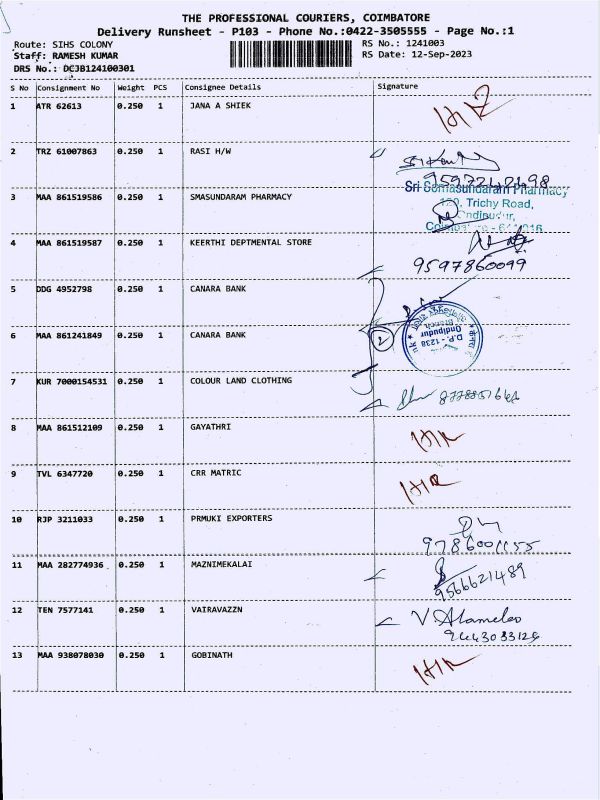 THE PROFESSIONAL COURIERS, COIMBATORE
Delivery Runsheet - P103 - Phone No.:0422-3505555 - Page No.:1
Route: SIHS COLONY RS No.: 1241003
Staff: RAMESH KUMAR RS Date: 12-Sep-2023
DRS No.: DCJB124100301
S No Consignment No Weight PCS Consignee Details Signature
1 ATR 62613 0.250 1 JANA A SHIEK
2 TRZ 61007863 0.250 1 RASI H/W
Sri Somasundaram Pharmacy
3 MAA 861519586 0.250 1 SMASUNDARAM PHARMACY
Trichy Road,
Ondipudur,
4 MAA 861519587 0.250 1 KEERTHI DEPTMENTAL STORE
9597860099
5 DDG 4952798 0.250 1 CANARA BANK
6 MAA 861241849 0.250 1 CANARA BANK
2
D.P. - 1238
Ondipudur
Branch
7 KUR 7000154531 0.250 1 COLOUR LAND CLOTHING
8 MAA 861512109 0.250 1 GAYATHRI
9 TVL 6347720 0.250 1 CRR MATRIC
10 RJP 3211033 0.250 1 PRMUKI EXPORTERS
9786001155
11 MAA 282774936 0.250 1 MAZNIMEKALAI
9566621489
12 TEN 7577141 0.250 1 VAIRAVAZZN
V. Alamelu
9443083129
13 MAA 938078030 0.250 1 GOBINATH